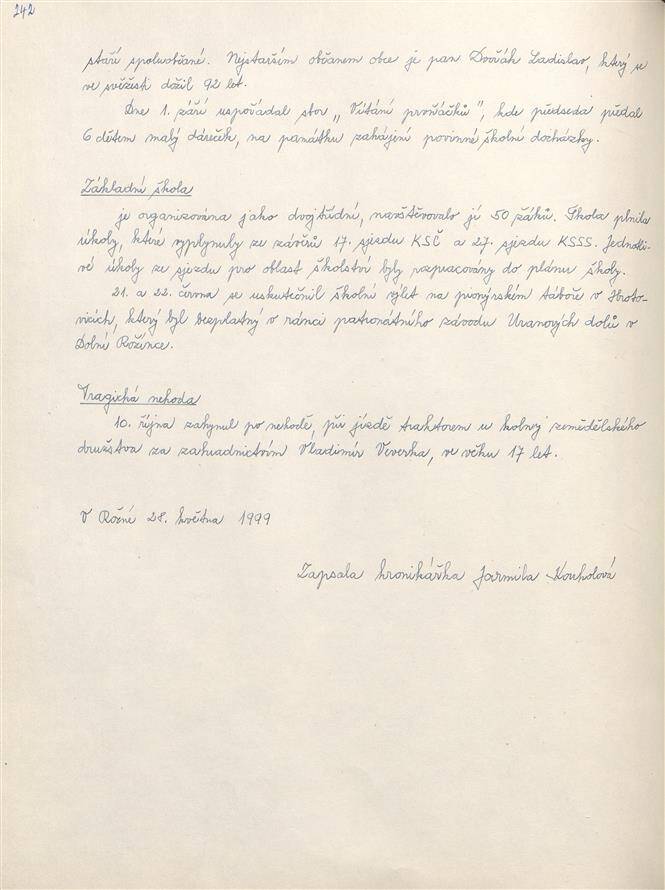 242
staří spoluobčané. Nejstarším občanem obce je pan Dvořák Ladislav, který se
ve svěžesti dožil 92 let.
Dne 1. září uspořádal sbor „Vítání prvňáčků", kde předseda předal
6 dětem malý dáreček, na památku zahájení povinné školní docházky.
Základní škola
je organizována jako dvojtřídní, navštěvovalo ji 50 žáků. Škola plnila
úkoly, které vyplynuly ze závěrů 17. sjezdu KSČ a 27. sjezdu KSSS. Jednotli-
vé úkoly ze sjezdu pro oblast školství byly rozpracovány do plánu školy.
21. a 22. června se uskutečnil školní výlet na pionýrském táboře v Hroto-
vicích, který byl bezplatný v rámci patronátního závodu Uranových dolů v
Dolní Rožínce.
Tragická nehoda
10. října zahynul po nehodě, při jízdě traktorem u kolny zemědělského
družstva za zahradnictvím Vladimír Veverka, ve věku 17 let.
V Rožné 28. května 1999
Zapsala kronikářka Jarmila Kouholová